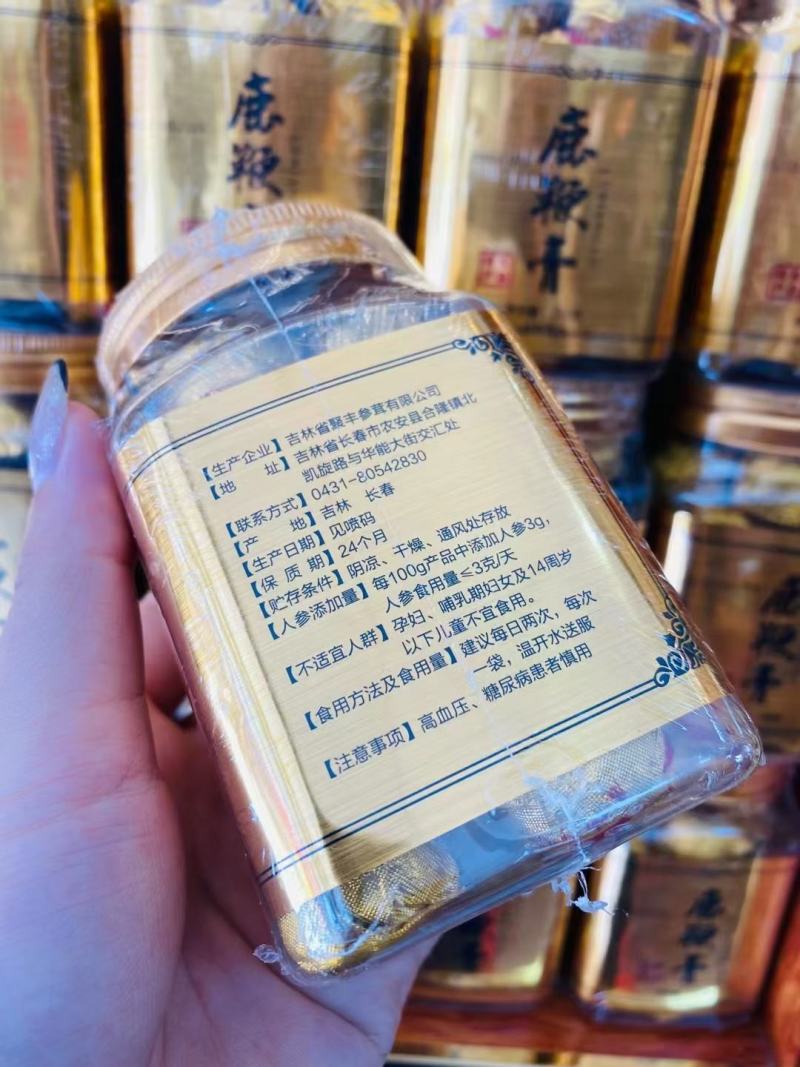 鹿鞭
鹿鞭膏
【生产企业】吉林省賢丰参茸有限公司
【地 址】吉林省长春市农安县合隆镇北
凯旋路与华能大街交汇处
【联系方式】0431-80542830
【产 地】吉林 长春
【生产日期】见喷码
【保 质 期】24个月
【贮存条件】阴凉、干燥、通风处存放
【人参添加量】每100g产品中添加人参3g,
人参食用量≤3克/天
【不适宜人群】孕妇、哺乳期妇女及14周岁
以下儿童不宜食用。
【食用方法及食用量】建议每日两次，每次
一袋，温开水送服
【注意事项】高血压、糖尿病患者慎用
鹿鞭膏
鹿鞭膏